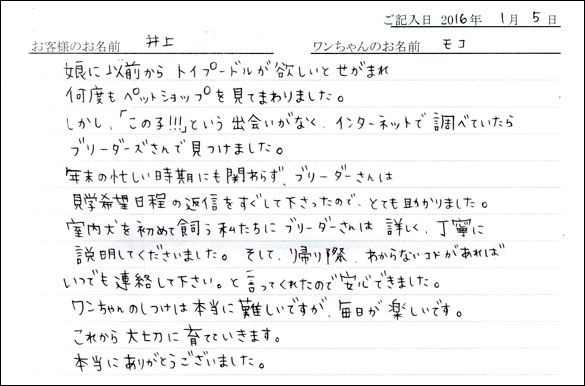 ご記入日 2016年 1月 5日
お客様のお名前 井上 ワンちゃんのお名前 モコ
娘に以前から トイプードルが欲しいと せがまれ
何度も ペットショップを見てまわりました。
しかし、「この子!!!」という 出会いがなく、インターネットで 調べていたら
ブリーダーズさんで見つけました。
年末の忙しい時期にも関わらず、ブリーダーさんは
見学希望日程の返信をすぐして下さったので、とても助かりました。
室内犬を初めて飼う私たちに ブリーダーさんは 詳しく、丁寧に
説明してくださいました。そして、帰り際、わからないコトがあれば
いつでも連絡して下さい。と言ってくれたので安心できました。
ワンちゃんのしつけは本当に難しいですが、毎日が楽しいです。
これから大切に育てていきます。
本当にありがとうございました。